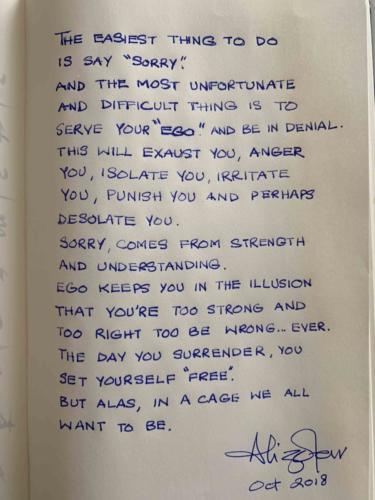 THE EASIEST THING TO DO
IS SAY "SORRY".
AND THE MOST UNFORTUNATE
AND DIFFICULT THING IS TO
SERVE YOUR "EGO". AND BE IN DENIAL.
THIS WILL EXAUST YOU, ANGER
YOU, ISOLATE YOU, IRRITATE
YOU, PUNISH YOU AND PERHAPS
DESOLATE YOU.
SORRY, COMES FROM STRENGTH
AND UNDERSTANDING.
EGO KEEPS YOU IN THE ILLUSION
THAT YOU'RE TOO STRONG AND
TOO RIGHT TOO BE WRONG... EVER.
THE DAY YOU SURRENDER, YOU
SET YOURSELF "FREE".
BUT ALAS, IN A CAGE WE ALL
WANT TO BE.
Oct 2018